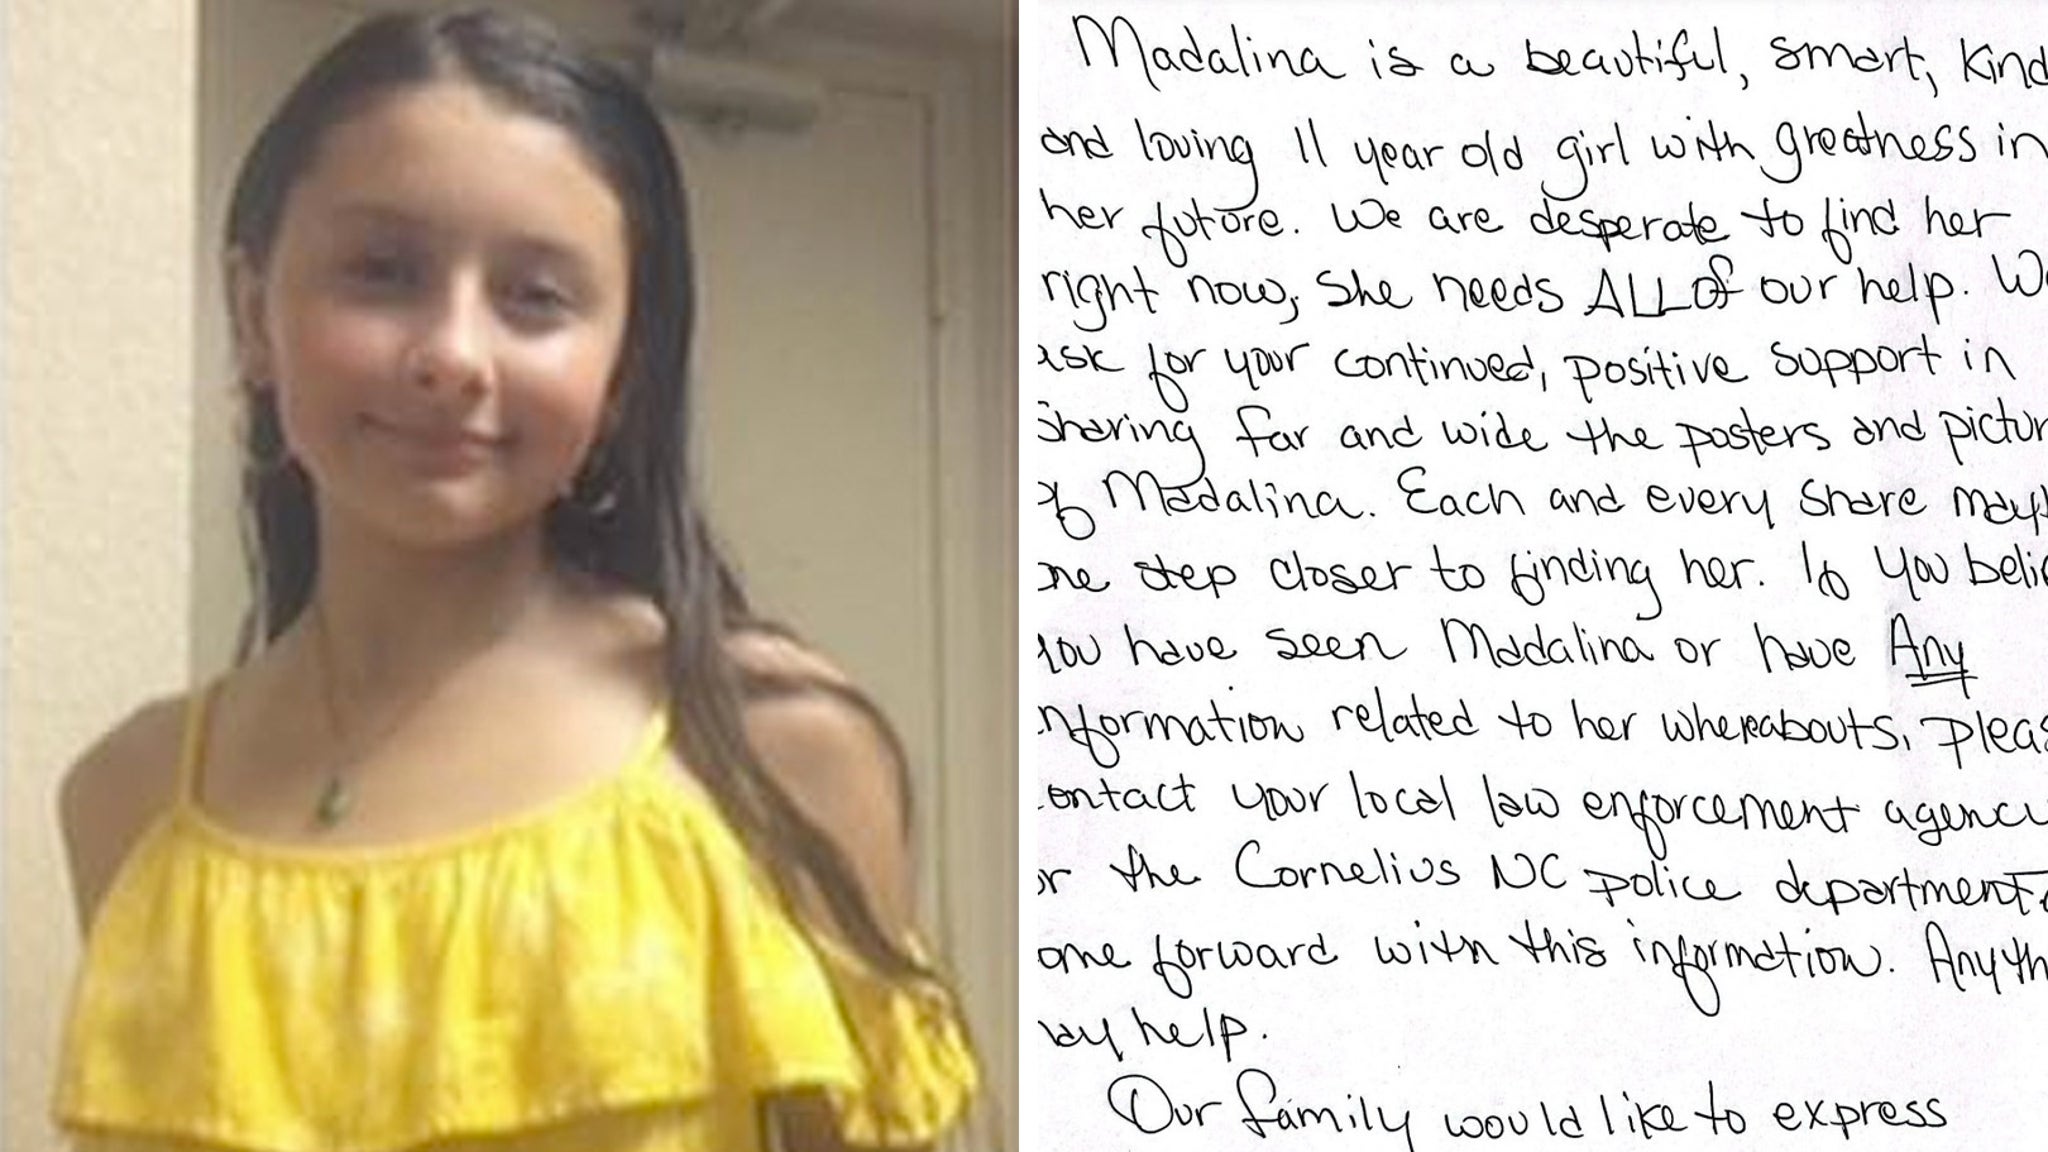 Madalina is a beautiful, smart, kind
and loving 11 year old girl with greatness in
her future. We are desperate to find her
right now, she needs ALL of our help. We
ask for your continued, positive support in
sharing far and wide the posters and pictur
of Madalina. Each and every share may b
one step closer to finding her. If you belie
you have seen Madalina or have Any
information related to her whereabouts, pleas
contact your local law enforcement agency
or the Cornelius NC police department
ome forward with this information. Anyth
ay help.
Our family would like to express